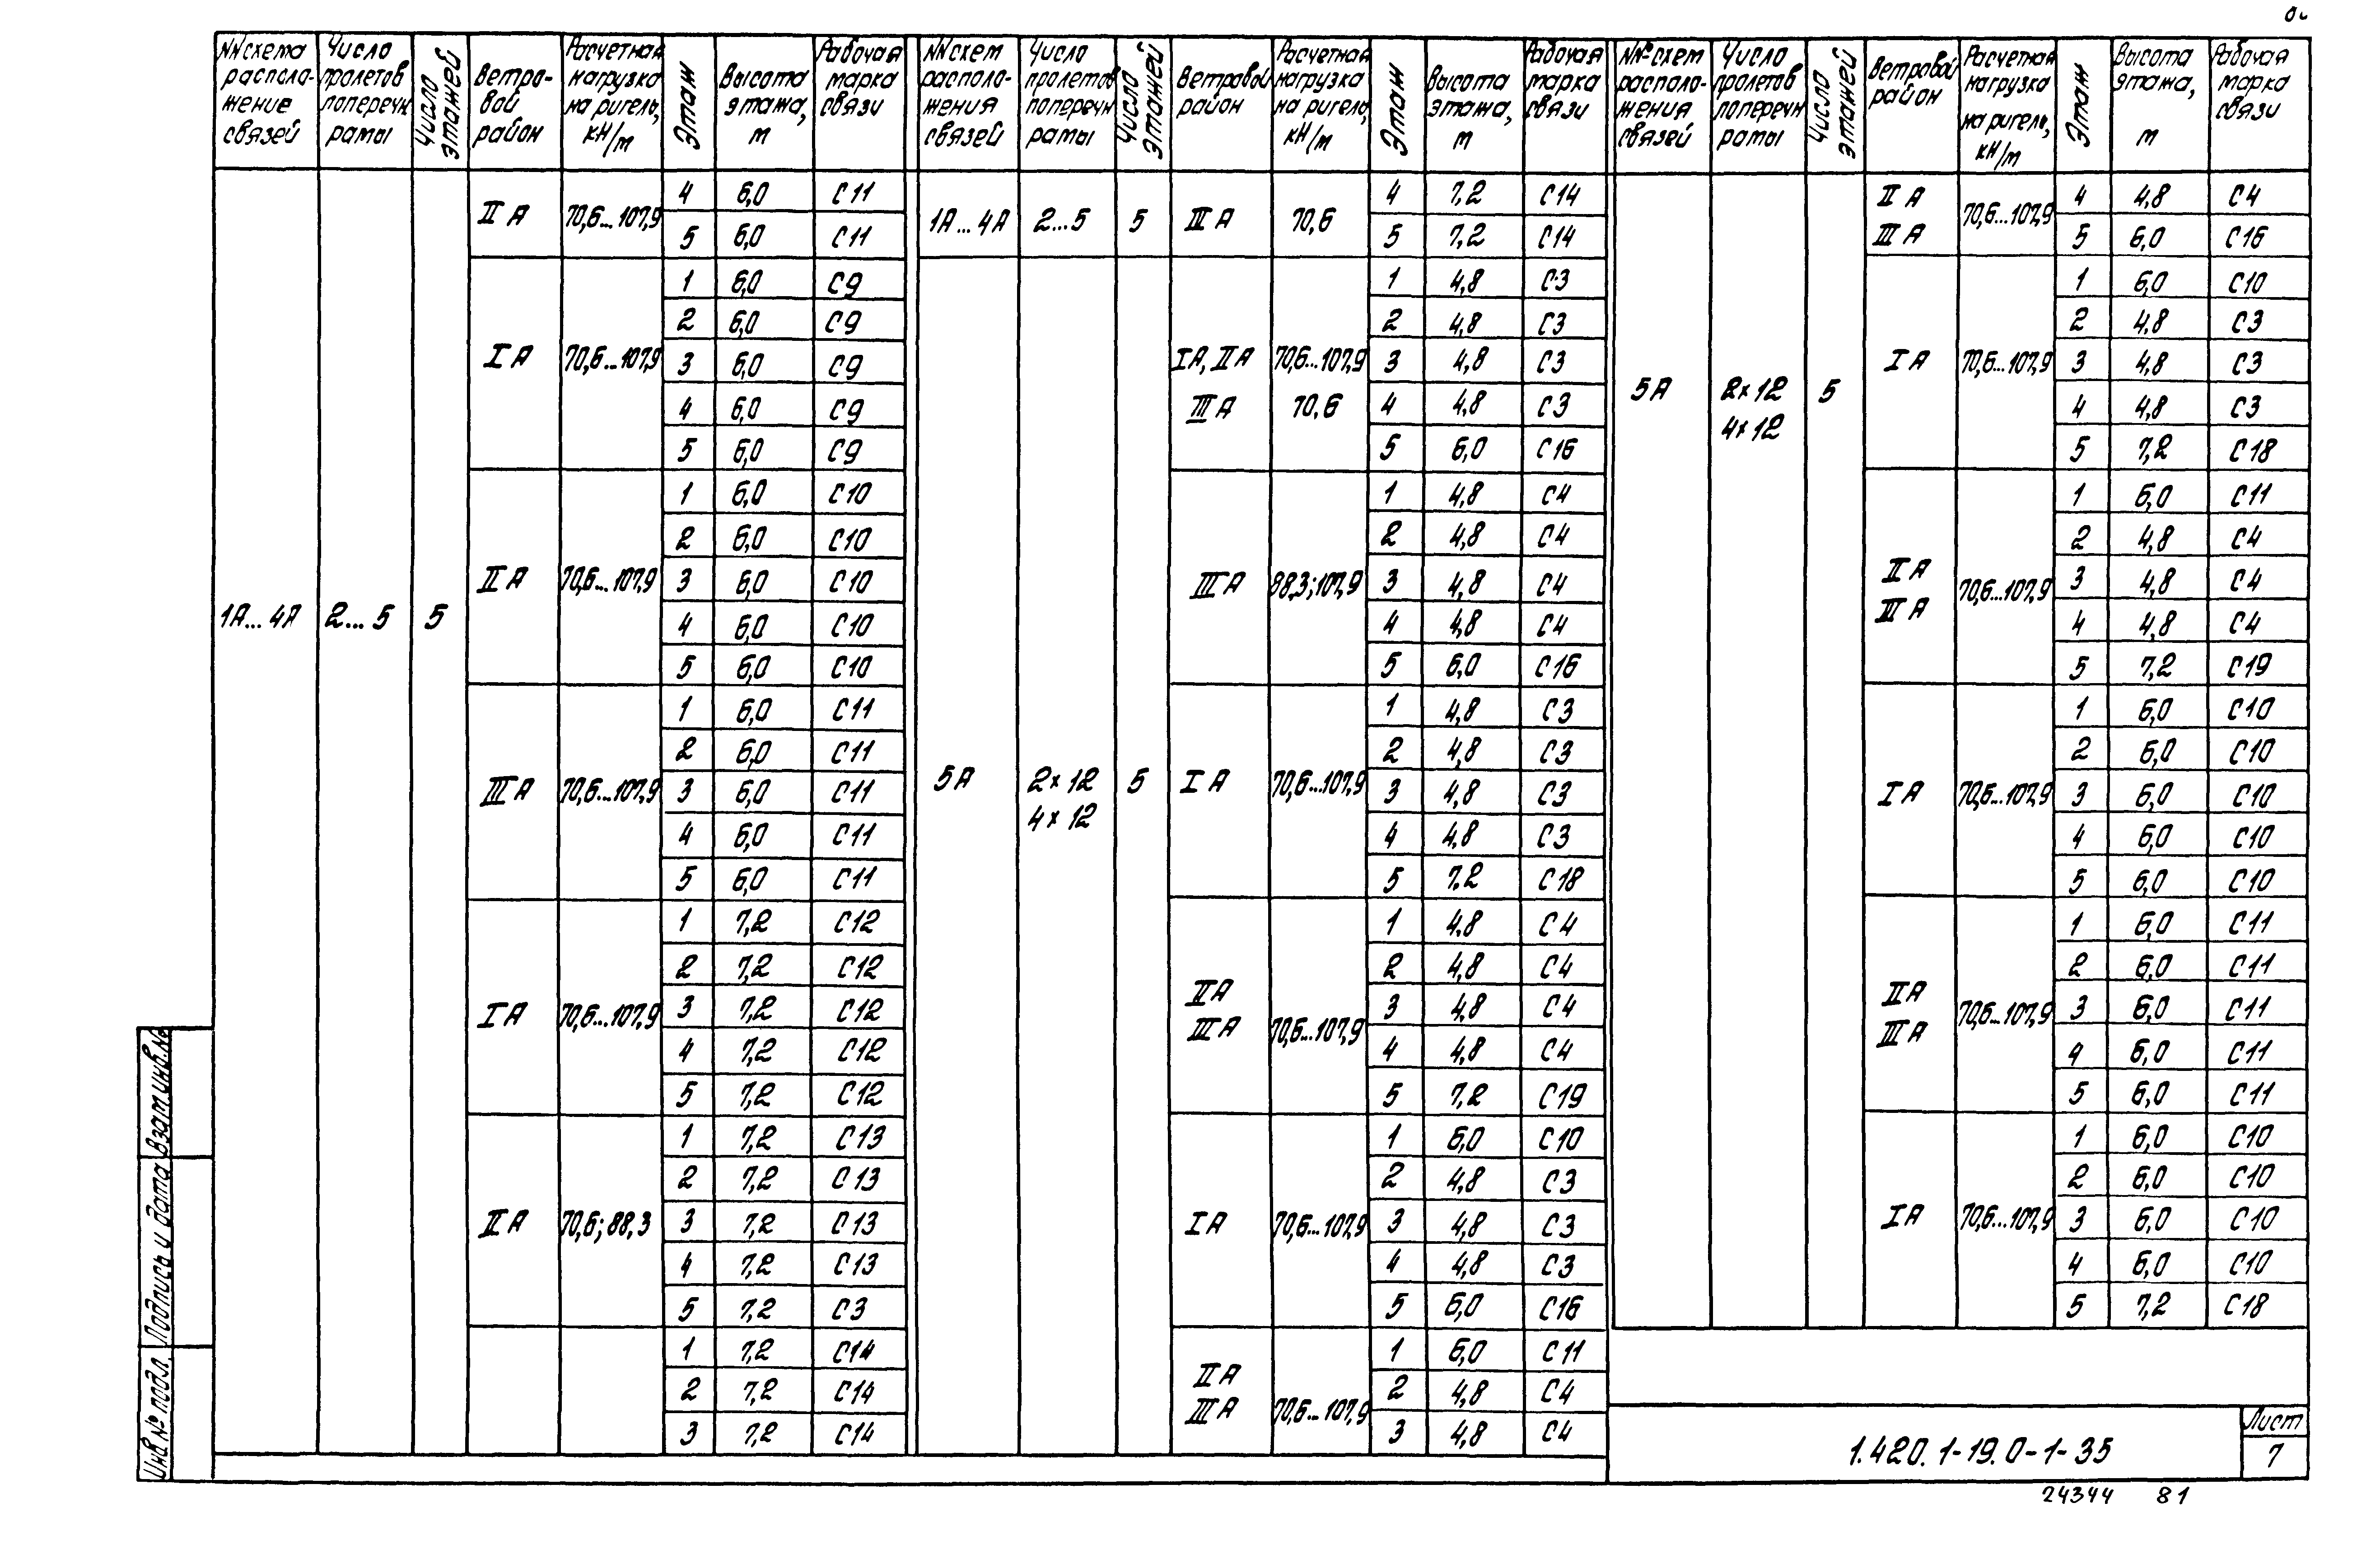 NN схема расположение связей | Число пролетов поперечн рамы | Число этажей | Ветровой район | Расчетная нагрузка на ригель, кН/м | Этаж | Высота этажа, м | Рабочая марка связи
1А...4А | 2...5 | 5
IIА | 70,6...107,9
4 | 6,0 | С11
5 | 6,0 | С11
IА | 70,6...107,9
1 | 6,0 | С9
2 | 6,0 | С9
3 | 6,0 | С9
4 | 6,0 | С9
5 | 6,0 | С9
IIА | 70,6...107,9
1 | 6,0 | С10
2 | 6,0 | С10
3 | 6,0 | С10
4 | 6,0 | С10
5 | 6,0 | С10
IIIА | 70,6...107,9
1 | 6,0 | С11
2 | 6,0 | С11
3 | 6,0 | С11
4 | 6,0 | С11
5 | 6,0 | С11
IА | 70,6...107,9
1 | 7,2 | С12
2 | 7,2 | С12
3 | 7,2 | С12
4 | 7,2 | С12
5 | 7,2 | С12
IIА | 70,6; 88,3
1 | 7,2 | С13
2 | 7,2 | С13
3 | 7,2 | С13
4 | 7,2 | С13
5 | 7,2 | С3
1 | 7,2 | С14
2 | 7,2 | С14
3 | 7,2 | С14
NN схем расположения связей | Число пролетов поперечн рамы | Число этажей | Ветровой район | Расчетная нагрузка на ригель, кН/м | Этаж | Высота этажа, м | Рабочая марка связи
1А...4А | 2...5 | 5 | IIIА | 70,6
4 | 7,2 | С14
5 | 7,2 | С14
5А | 2×12 4×12 | 5
IА, IIА | 70,6...107,9
IIIА | 70,6
1 | 4,8 | С3
2 | 4,8 | С3
3 | 4,8 | С3
4 | 4,8 | С3
5 | 6,0 | С16
IIIА | 88,3; 107,9
1 | 4,8 | С4
2 | 4,8 | С4
3 | 4,8 | С4
4 | 4,8 | С4
5 | 6,0 | С16
IА | 70,6...107,9
1 | 4,8 | С3
2 | 4,8 | С3
3 | 4,8 | С3
4 | 4,8 | С3
5 | 7,2 | С18
IIА IIIА | 70,6...107,9
1 | 4,8 | С4
2 | 4,8 | С4
3 | 4,8 | С4
4 | 4,8 | С4
5 | 7,2 | С19
IА | 70,6...107,9
1 | 6,0 | С10
2 | 4,8 | С3
3 | 4,8 | С3
4 | 4,8 | С3
5 | 6,0 | С16
IIА IIIА | 70,6...107,9
1 | 6,0 | С11
2 | 4,8 | С4
3 | 4,8 | С4
N№ схем расположения связей | Число пролетов поперечн рамы | Число этажей | Ветровой район | Расчетная нагрузка на ригель, кН/м | Этаж | Высота этажа, м | Рабочая марка связи
5А | 2×12 4×12 | 5
IIА IIIА | 70,6...107,9
4 | 4,8 | С4
5 | 6,0 | С16
IА | 70,6...107,9
1 | 6,0 | С10
2 | 4,8 | С3
3 | 4,8 | С3
4 | 4,8 | С3
5 | 7,2 | С18
IIА IIIА | 70,6...107,9
1 | 6,0 | С11
2 | 4,8 | С4
3 | 4,8 | С4
4 | 4,8 | С4
5 | 7,2 | С19
IА | 70,6...107,9
1 | 6,0 | С10
2 | 6,0 | С10
3 | 6,0 | С10
4 | 6,0 | С10
5 | 6,0 | С10
IIА IIIА | 70,6...107,9
1 | 6,0 | С11
2 | 6,0 | С11
3 | 6,0 | С11
4 | 6,0 | С11
5 | 6,0 | С11
IА | 70,6...107,9
1 | 6,0 | С10
2 | 6,0 | С10
3 | 6,0 | С10
4 | 6,0 | С10
5 | 7,2 | С18
Инв № подл. | Подпись и дата | Взам.инв.№
1.420.1-19.0-1-35
Лист
7
24344 81